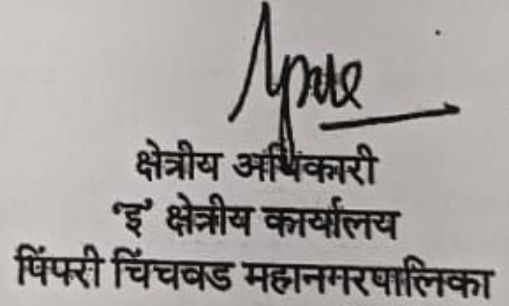 क्षेत्रीय अधिकारी
'इ' क्षेत्रीय कार्यालय
पिंपरी चिंचवड महानगरपालिका